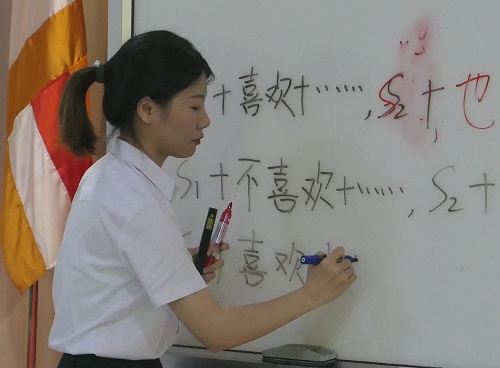 +喜欢+……,S₂+,也
S₁+不喜欢+……,S₂+
喜欢